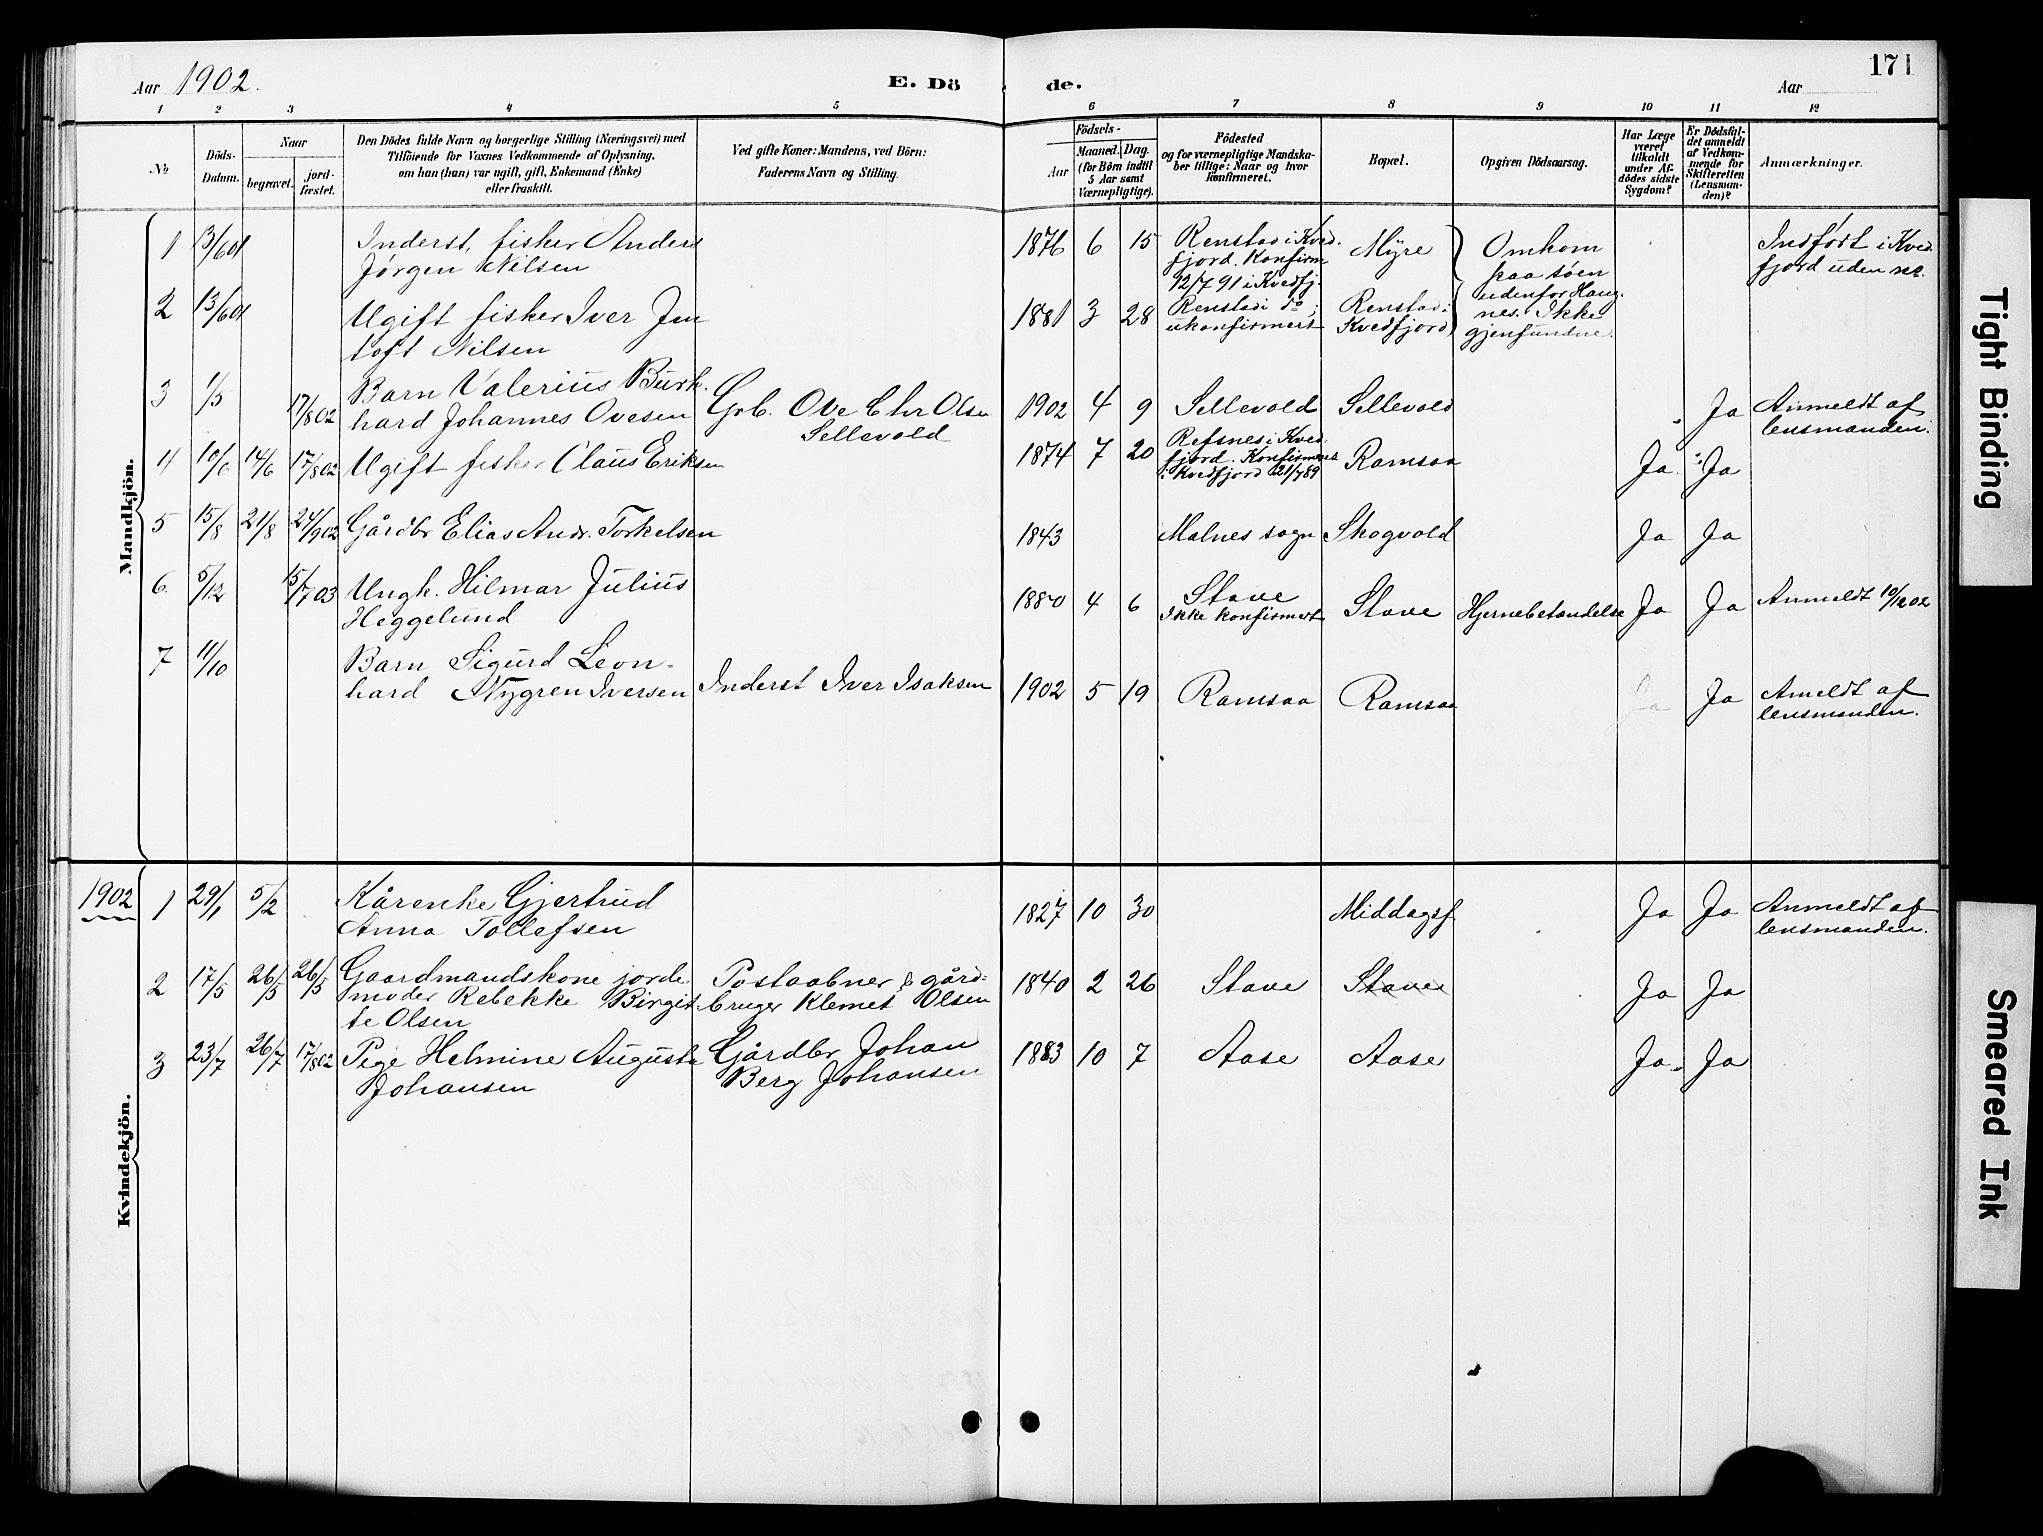 171
Aar 1902.
E. Dö
de.
Aar
1 2 3 4 5 6 7 8 9 10 11 12
No
Döds-
Datum.
Naar
begravet.
jord-
fæstet.
Den Dödes fulde Navn og borgerlige Stilling (Næringsvei) med
Tilföiende for Voxnes Vedkommende af Oplysning,
om han (hun) var ugift, gift, Enkemand (Enke)
eller fraskilt.
Ved gifte Koner: Mandens, ved Börn:
Faderens Navn og Stilling.
Födsels-
Aar
Maaned. Dag.
(for Börn indtil
5 Aar samt
Værnepligtige).
Födested
og for værnepligtige Mandska-
ber tillige: Naar og hvor
konfirmeret.
Bopæl.
Opgiven Dödsaarsag.
Har Læge
været
tilkaldt
under Af-
dödes sidste
Sygdom?
Er Dödsfal-
det anmeldt
af Vedkom-
mende for
Skifteretten
(Lensman-
den)?
Anmærkninger.
Mandkjön.
1 13/6 01 Inderst, fisker Anders
Jørgen Nilsen
1876 6 15
Renstad i Kved.
fjord. Konfirm
12/7 91 i Kvedfj.
Myre
Omkom
paa søen
udenfor Haug-
nes. Ikke
gjenfundne.
Indført i Kved.
fjord uden no.
2 13/6 01 Ugift fisker Iver Jen
toft Nilsen
1881 3 28
Renstad i do;
ukonfirmert
Renstad i
Kvedfjord
3 1/5 17/8 02 Barn Valerius Burk-
hard Johannes Ovesen
Grb. Ove Chr Olsen
Sellevold
1902 4 9 Sellevold Sellevold Ja
Anmeldt af
lensmanden.
4 10/6 14/6 17/8 02 Ugift fisker Claus Eriksen
1874 7 20
Refsnes i Kved.
fjord. Konfirmert
i Kvedfjord 21/7 89
Ramsaa Ja Ja
5 15/8 21/8 24/9 02 Gårdbr Elias Andr. Torkelsen
1843 Malnes sogn Skogvold Ja Ja
6. 5/12 15/7 03 Ungk. Hilmar Julius
Heggelund
1880 4 6 Stave
Ikke konfirmert
Stave Hjernebetændelse Ja Ja Anmeldt 10/12 02
7 11/10 Barn Sigurd Leon-
hard Nygren Iversen
Inderst Iver Isaksen
1902 5 19 Ramsaa Ramsaa Ja Ja
Ameldt af
lensmanden.
Kvindekjön.
1902 1 29/1 5/2 Kårenke Gjertrud
Anna Tollefsen
1827 10 30 Middagsf. Ja Ja
Anmeldt af
lensmanden.
2 17/5 26/5 26/5 Gaardmandskone jorde-
moder Rebekke Birgit-
te Olsen
Postaabner & gård-
bruger Klemet Olsen
1840 2 26 Stave Stave Ja Ja
3 23/7 26/7 17/8 02 Pige Helmine Augusta
Johansen
Gårdbr Johan
Berg Johansen
1883 10 7 Aase Aase Ja. Ja
Tight Binding
Smeared Ink